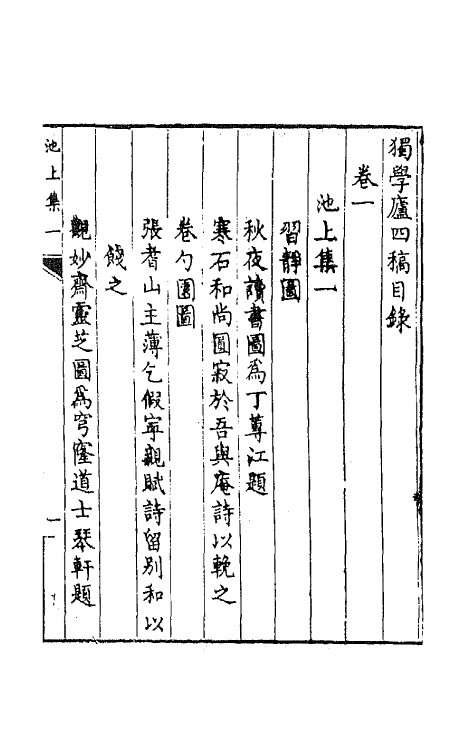 獨學廬四稿目錄
卷一
池上集一
習靜圖
秋夜讀書圖爲丁蓴江題
寒石和尚圓寂於吾與庵詩以輓之
卷勺園圖
張耆山主薄乞假寧親賦詩留別和以
餞之
觀妙齋靈芝圖爲穹窿道士琴軒題
池上集一
一